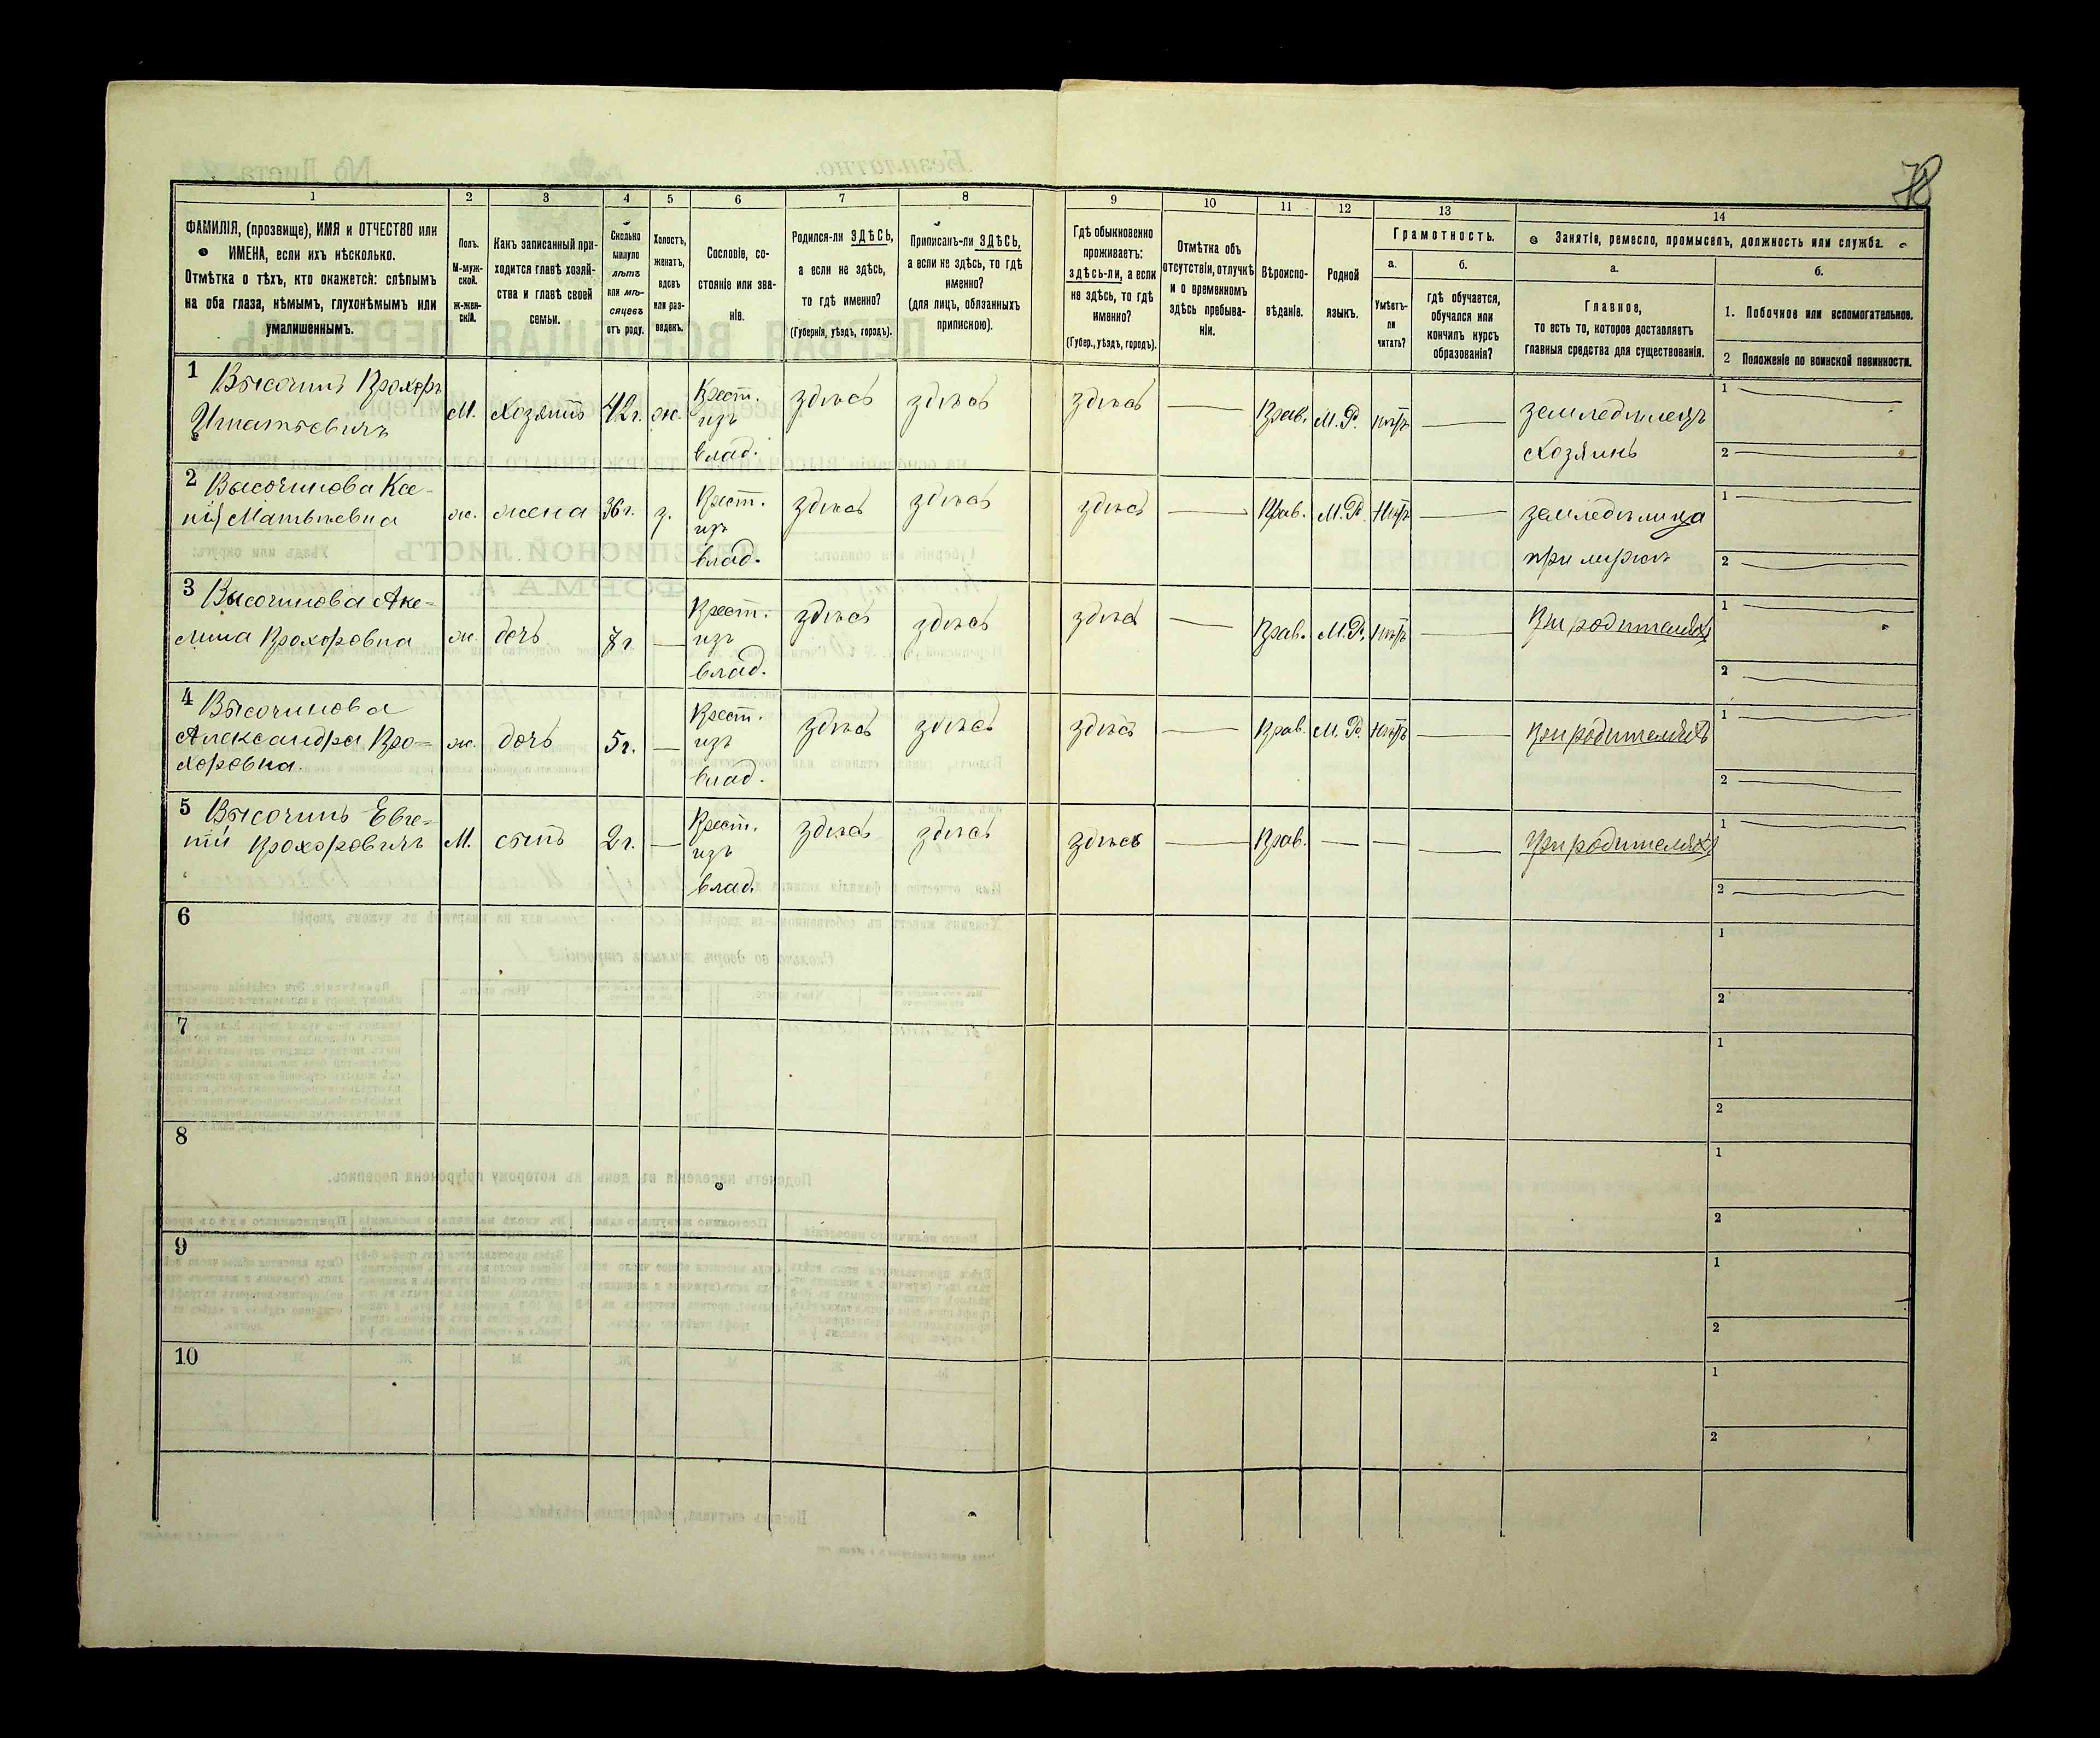 78
1 2 3 4 5 6 7 8 9 10 11 12 13 14
ФАМИЛІЯ, (прозвище), ИМЯ и ОТЧЕСТВО или
ИМЕНА, если ихъ нѣсколько.
Отмѣтка о тѣхъ, кто окажется: слѣпымъ
на оба глаза, нѣмымъ, глухонѣмымъ или
умалишеннымъ.
Полъ.
М-муж-
ской.
ж-жен-
скій.
Какъ записанный при-
ходится главѣ хозяй-
ства и главѣ своей
семьи.
Сколько
минуло
лѣтъ
или мѣ-
сяцевъ
отъ роду.
Холостъ,
женатъ,
вдовъ
или раз-
веденъ.
Сословіе, со-
стояніе или зва-
ніе.
Родился-ли ЗДѢСЬ,
а если не здѣсь,
то гдѣ именно?
(Губернія, уѣздъ, городъ).
Приписанъ-ли ЗДѢСЬ,
а если не здѣсь, то гдѣ
именно?
(для лицъ, обязанныхъ
припискою).
Гдѣ обыкновенно
проживаетъ:
здѣсь-ли, а если
не здѣсь, то гдѣ
именно?
(Губер., уѣздъ, городъ).
Отмѣтка объ
отсутствіи, отлучкѣ
и о временномъ
здѣсь пребыва-
ніи.
Вѣроиспо-
вѣданіе.
Родной
языкъ.
Грамотность.
а.
Умѣетъ-
ли
читать?
б.
гдѣ обучается,
обучался или
кончилъ курсъ
образованія?
Занятіе, ремесло, промыселъ, должность или служба.
а.
Главное,
то есть то, которое доставляетъ
главныя средства для существованія.
б.
1. Побочное или вспомогательное.
2 Положеніе по воинской повинности.
1 Высочинъ Прохоръ
Игнатьевичъ
М. Хозяинъ 42г. ж.
Крест.
изъ
влад.
здѣсь здѣсь здѣсь — Прав. М.Р. нѣтъ —
земледѣлецъ
хозяинъ
1
2
2 Высочинова Ксе-
нія Матвѣевна
ж. жена 36г. з.
Крест.
изъ
влад.
здѣсь здѣсь здѣсь — Прав. М.Р. нѣтъ —
земледѣлица
при
1
2
3 Высочинова Аке-
лина Прохоровна
ж. дочь 7г —
Крест.
изъ
влад.
здѣсь здѣсь здѣсь — Прав. М.Р. нѣтъ —
При родителяхъ
1
2
4 Высочинова
Александра Про-
хоровна.
ж. дочь 5г. —
Крест.
изъ
влад.
здѣсь здѣсь здѣсь — Прав. М.Р. нѣтъ —
При родителяхъ
1
2
5 Высочинъ Евге-
ній Прохоровичъ
М. сынъ 2г. —
Крест.
изъ
влад.
здѣсь здѣсь здѣсь — Прав. — — —
При родителяхъ
1
2
6
1
2
7
1
2
8
1
2
9
1
2
10
1
2